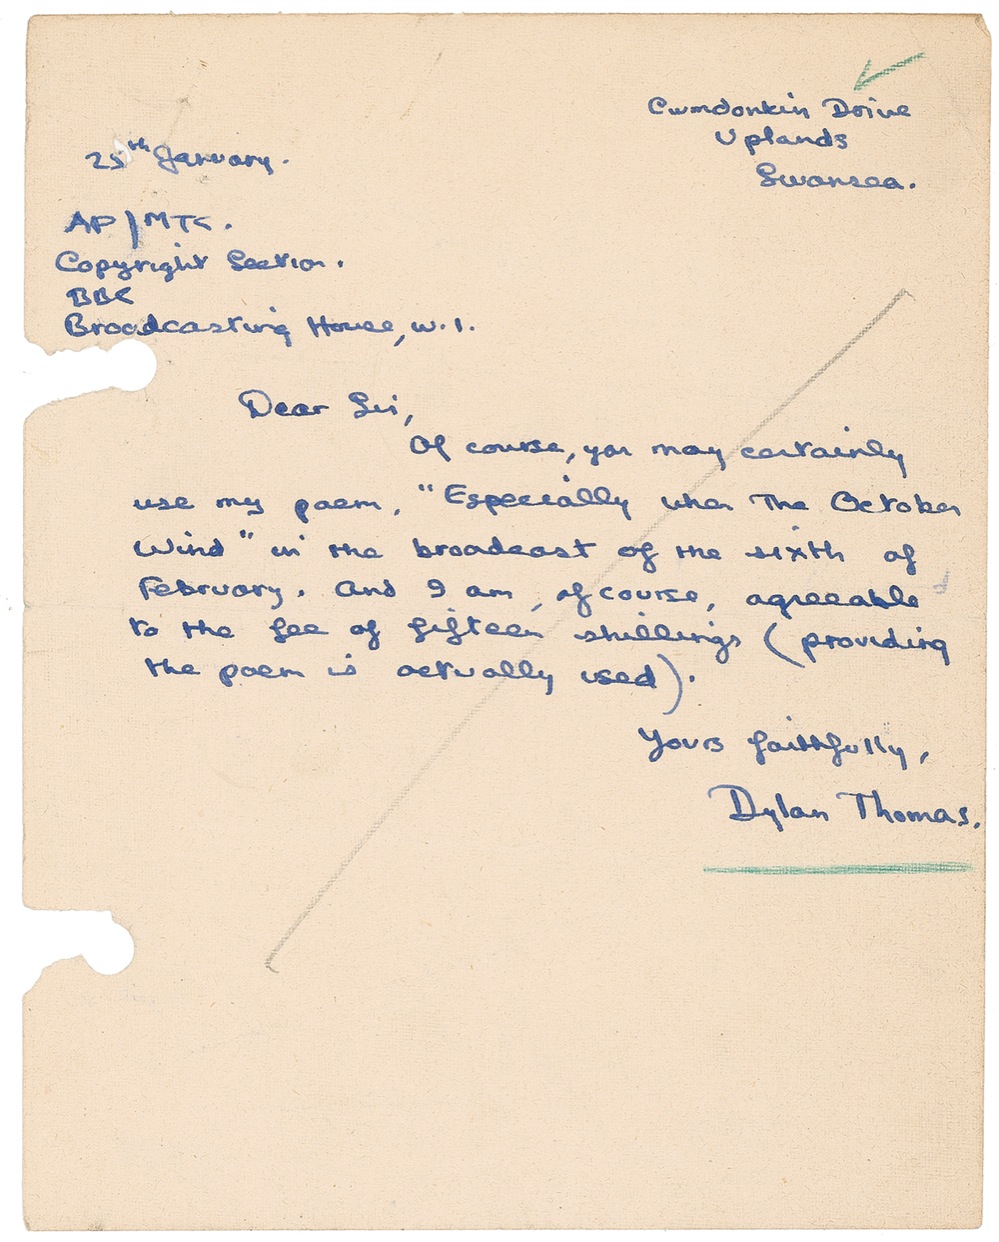 Cwmdonkin Drive
Uplands
Swansea.
25th January.
AP/MTC.
Copyright Section.
BBC
Broadcasting House, W.1.
Dear Sir,
Of course, you may certainly
use my poem, "Especially when The October
Wind" in the broadcast of the sixth of
February. And I am, of course, agreeable
to the fee of fifteen shillings (providing
the poem is actually used).
Yours faithfully,
Dylan Thomas.